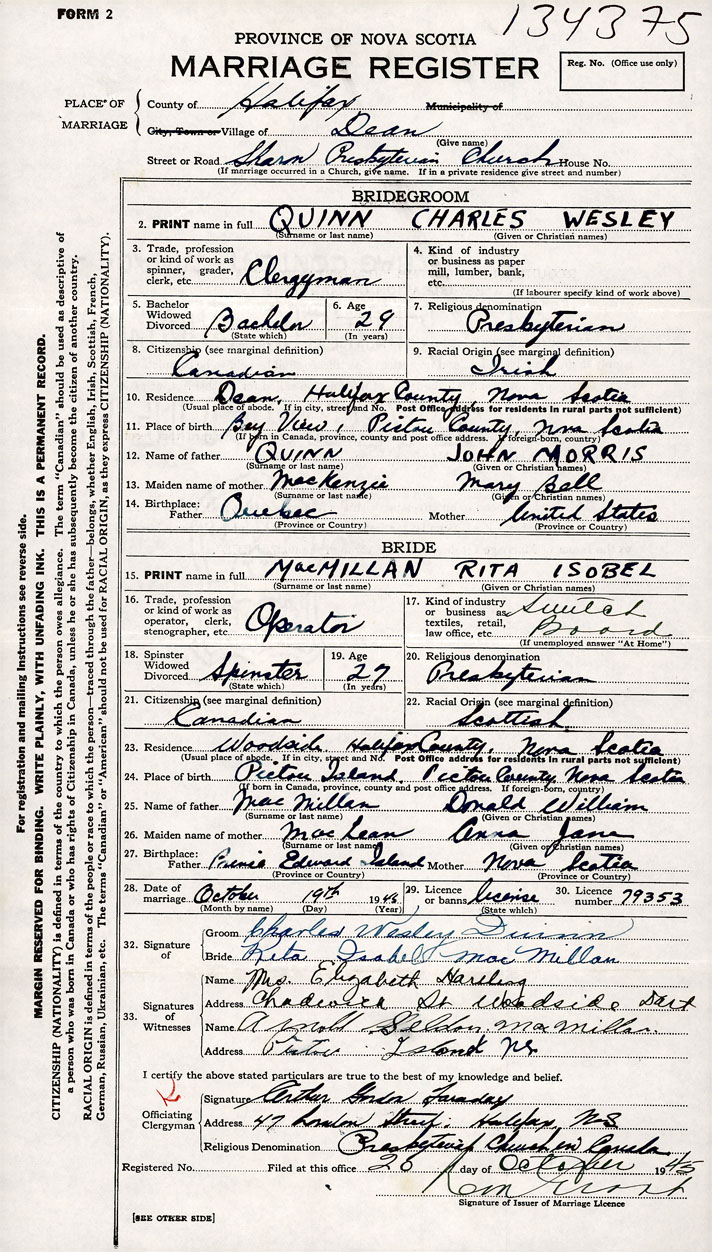 FORM 2
134375
PROVINCE OF NOVA SCOTIA
MARRIAGE REGISTER
Reg. No. (Office use only)
PLACE OF MARRIAGE
County of Halifax Municipality of
City, Town or Village of Dean
(Give name)
Street or Road Sharon Presbyterian Church House No.
(If marriage occurred in a Church, give name. If in a private residence give street and number)
BRIDEGROOM
2. PRINT name in full QUINN CHARLES WESLEY
(Surname or last name) (Given or Christian names)
3. Trade, profession or kind of work as spinner, grader, clerk, etc. Clergyman
4. Kind of industry or business as paper mill, lumber, bank, etc.
(If labourer specify kind of work above)
5. Bachelor Widowed Divorced Bachelor
(State which)
6. Age 29
(In years)
7. Religious denomination Presbyterian
8. Citizenship (see marginal definition) Canadian
9. Racial Origin (see marginal definition) Irish
10. Residence Dean, Halifax County, Nova Scotia
(Usual place of abode. If in city, street and No. Post Office address for residents in rural parts not sufficient)
11. Place of birth Bay View, Pictou County, Nova Scotia
(If born in Canada, province, county and post office address. If foreign-born, country)
12. Name of father QUINN JOHN MORRIS
(Surname or last name) (Given or Christian names)
13. Maiden name of mother MacKenzie Mary Bell
(Surname or last name) (Given or Christian names)
14. Birthplace: Father Quebec Mother United States
(Province or Country) (Province or Country)
BRIDE
15. PRINT name in full MacMILLAN RITA ISOBEL
(Surname or last name) (Given or Christian names)
16. Trade, profession or kind of work as operator, clerk, stenographer, etc. Operator
17. Kind of industry or business as textiles, retail, law office, etc. Switch Board
(If unemployed answer "At Home")
18. Spinster Widowed Divorced Spinster
(State which)
19. Age 27
(In years)
20. Religious denomination Presbyterian
21. Citizenship (see marginal definition) Canadian
22. Racial Origin (see marginal definition) Scottish
23. Residence Woodside, Halifax County, Nova Scotia
(Usual place of abode. If in city, street and No. Post Office address for residents in rural parts not sufficient)
24. Place of birth Pictou Island, Pictou County, Nova Scotia
(If born in Canada, province, county and post office address. If foreign-born, country)
25. Name of father MacMillan Donald William
(Surname or last name) (Given or Christian names)
26. Maiden name of mother MacLean Anna Jane
(Surname or last name) (Given or Christian names)
27. Birthplace: Father Prince Edward Island Mother Nova Scotia
(Province or Country) (Province or Country)
28. Date of marriage October 19th 1945
(Month by name) (Day) (Year)
29. Licence or banns license
(State which)
30. Licence number 79353
32. Signature of
Groom Charles Wesley Quinn
Bride Rita Isabel MacMillan
33. Signatures of Witnesses
Name Mrs. Elizabeth
Address St Woodside Dart
Name Arnold MacMillan
Address Pictou Island NS
I certify the above stated particulars are true to the best of my knowledge and belief.
Officiating Clergyman
Signature Arthur Gordon Faraday
Address 47 London Street. Halifax, N-S
Religious Denomination Presbyterian Church in Canada
Registered No. Filed at this office 26 day of October 1945
Signature of Issuer of Marriage Licence
[SEE OTHER SIDE]
For registration and mailing instructions see reverse side.
MARGIN RESERVED FOR BINDING. WRITE PLAINLY, WITH UNFADING INK. THIS IS A PERMANENT RECORD.
CITIZENSHIP (NATIONALITY) is defined in terms of the country to which the person owes allegiance. The term "Canadian" should be used as descriptive of
a person who was born in Canada or who has rights of Citizenship in Canada, unless he or she has subsequently become the citizen of another country.
RACIAL ORIGIN is defined in terms of the people or race to which the person—traced through the father—belongs, whether English, Irish, Scottish, French,
German, Russian, Ukrainian, etc. The terms "Canadian" or "American" should not be used for RACIAL ORIGIN, as they express CITIZENSHIP (NATIONALITY).